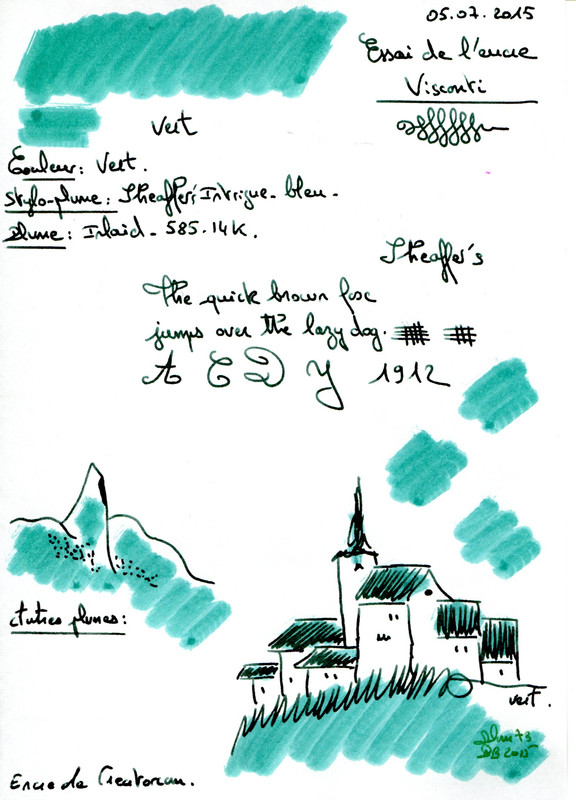 05.07.2015
Essai de l'encre
Visconti
Vert
Couleur: Vert.
Stylo-plume: Sheaffer's Intrigue bleu.
Plume: Inlaid - 585. 14K.
Sheaffer's
The quick brown fox
jumps over the lazy dog.
A E D Y 1912
Autres plumes:
vert.
Plum73
DB 2015
Encre de